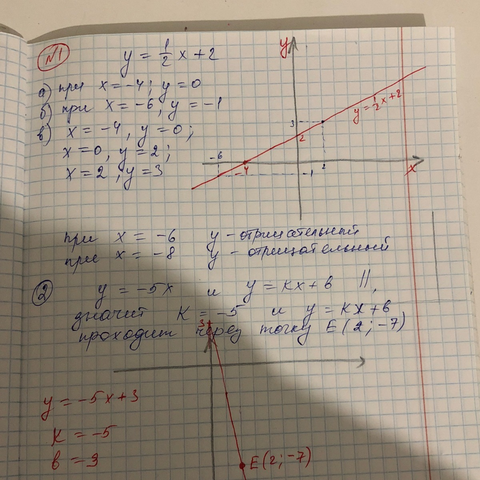 №1
y = 1/2 x + 2
а) при x = -4; y = 0
б) при x = -6, y = -1
в) x = -4, y = 0;
x = 0, y = 2;
x = 2, y = 3
y
3
2
y = 1/2 x + 2
-6
-4
2
-1
x
при x = -6 y - отрицательный
при x = -8 y - отрицательный
2 y = -5x и y = kx + b ||,
значит k = -5 и y = kx + b
проходит через точку E (2; -7)
3
y = -5x + 3
k = -5
b = 3
E (2; -7)